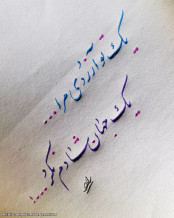 یک تو آزردی مرا...
یک جهان شادم نکرد...!